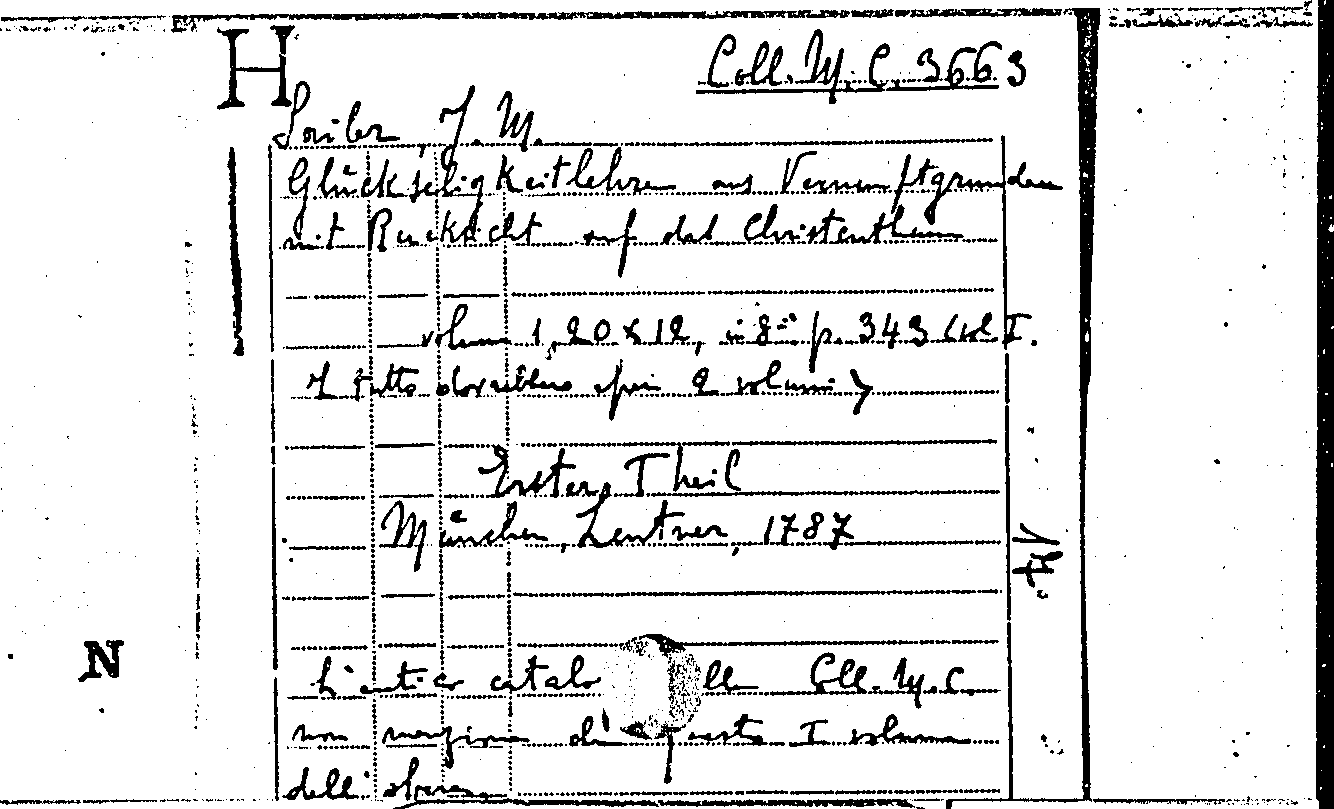 H
Coll. M. C. 3663
Sailer, J. M.
Glückseligkeitlehre aus Vernunftgrunden
mit Rucksicht auf das Christenthum
volume 1, 20 x 12, in 8° p. 343 (vol I.
I tutto dovrebbero essere 2 volumi)
Erster Theil
München, Lentner, 1787
N
L'antico catalo lla Coll. M. C.
non menziona di questo I volume
dell'opera.